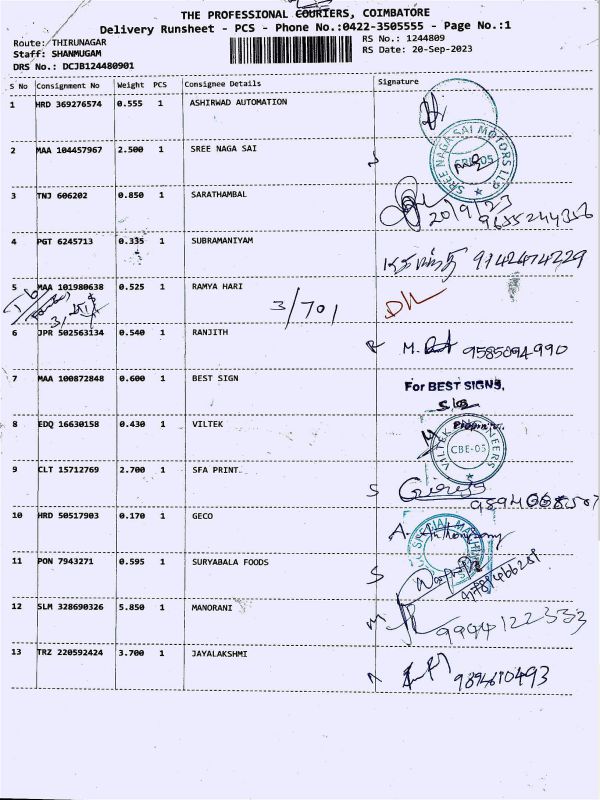 THE PROFESSIONAL COURIERS, COIMBATORE
Delivery Runsheet - PCS - Phone No.:0422-3505555 - Page No.:1
Route: THIRUNAGAR
RS No.: 1244809
Staff: SHANMUGAM
RS Date: 20-Sep-2023
DRS No.: DCJB124480901
S No Consignment No Weight PCS Consignee Details Signature
1 HRD 369276574 0.555 1 ASHIRWAD AUTOMATION
2 MAA 104457967 2.500 1 SREE NAGA SAI
SREE NAGA SAI MOTORS
3 TNJ 606202 0.850 1 SARATHAMBAL
20/9/23
9655244356
4 PGT 6245713 0.335 1 SUBRAMANIYAM
9142474229
5 MAA 101980638 0.525 1 RAMYA HARI
3/701
6 JPR 502563134 0.540 1 RANJITH
M. 9585094990
7 MAA 100872848 0.600 1 BEST SIGN
For BEST SIGNS,
8 EDQ 16630158 0.430 1 VILTEK
VILTEK ENGINEERS
CBE-05
9 CLT 15712769 2.700 1 SFA PRINT
S
10 HRD 50517903 0.170 1 GECO
A.
11 PON 7943271 0.595 1 SURYABALA FOODS
S
12 SLM 328690326 5.850 1 MANORANI
M
9944122333
13 TRZ 220592424 3.700 1 JAYALAKSHMI
9894610493